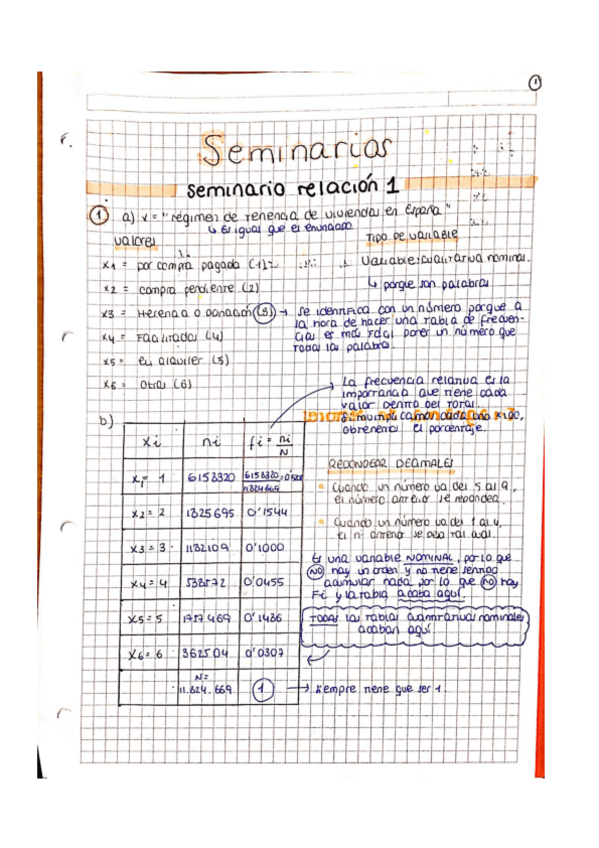 1
Seminarios
seminario relación 1
1 a) x = "régimen de tenencia de viviendas en España"
↳ Es igual que el enunciado
valores
Tipo de variable
x1 = por compra pagada (1)
Variable: cualitativa nominal.
x2 = compra pendiente (2)
↳ porque son palabras
x3 = Herencia o donación (3) → Se identifica con un número porque a
la hora de hacer una tabla de frecuen-
cias es más fácil poner un número que
todas las palabras.
x4 = Facilitadas (4)
x5 = en alquiler (5)
x6 = Otras (6)
La frecuencia relativa es la
importancia que tiene cada
valor dentro del total.
Si multiplicamos cada una x100,
obtenemos el porcentaje.
b)
xi ni fi = ni/N
x1 = 1 6153320 6153320
11824669
x2 = 2 1825695 0'1544
x3 = 3 1182109 0'1000
x4 = 4 538572 0'0455
x5 = 5 1757469 0'1486
x6 = 6 362504 0'0307
N=
11.824.669 1 → Siempre tiene que ser 1.
REDONDEAR DECIMALES
Cuando un número va del 5 al 9,
el número anterior se redondea.
Cuando un número va del 1 al 4,
el nº anterior se deja tal cual.
Es una variable NOMINAL, por lo que
NO hay un orden y no tiene sentido
acumular nada por lo que NO hay
Fi y la tabla acaba aquí.
TODAS las tablas cuantitativas nominales
acaban aquí